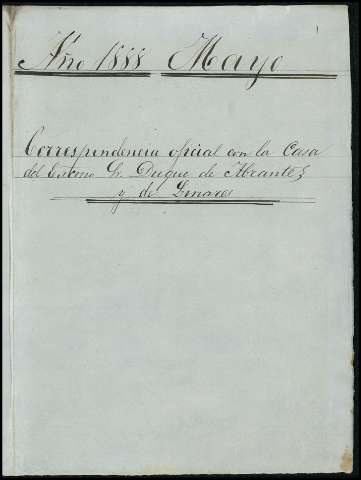 1
Año 1888 Mayo
Correspondencia oficial con la Casa
del Excmo Sr. Duque de Abrantes
y de Linares